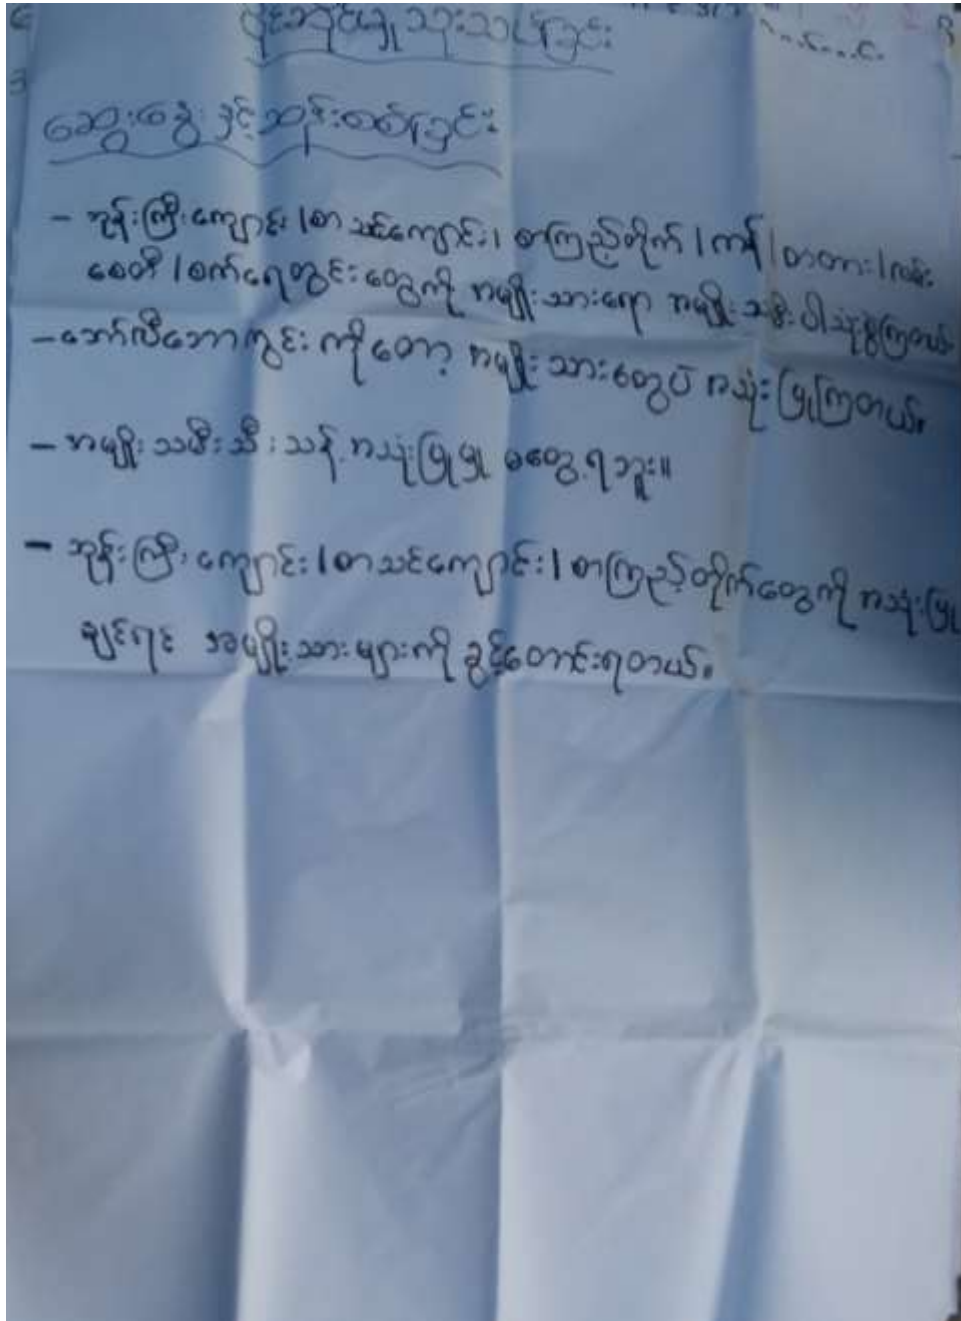 ပိုင်ဆိုင်မှု သုံးသပ်ခြင်း
ဆွေးနွေး နှင့် ဆန်းစစ်ခြင်း
- ဘုန်းကြီးကျောင်း ၊စာသင်ကျောင်း၊ စာကြည့်တိုက် ၊ကန် ၊တံတား ၊လမ်း
စေတီ ၊စက်ရေတွင်းတွေကို အမျိုးသားရော အမျိုးသမီးပါသုံးစွဲကြတယ်။
- ဘော်လီဘောကွင်း ကိုတော့ အမျိုးသားတွေပဲ အသုံးပြုကြတယ်။
- အမျိုးသမီးသီးသန့် အသုံးပြုမှု မတွေ့ရဘူး။
- ဘုန်းကြီးကျောင်း ၊စာသင်ကျောင်း၊ စာကြည့်တိုက်တွေကို အသုံးပြု
ချင်ရင် အမျိုးသားများကို ခွင့်တောင်းရတယ်။